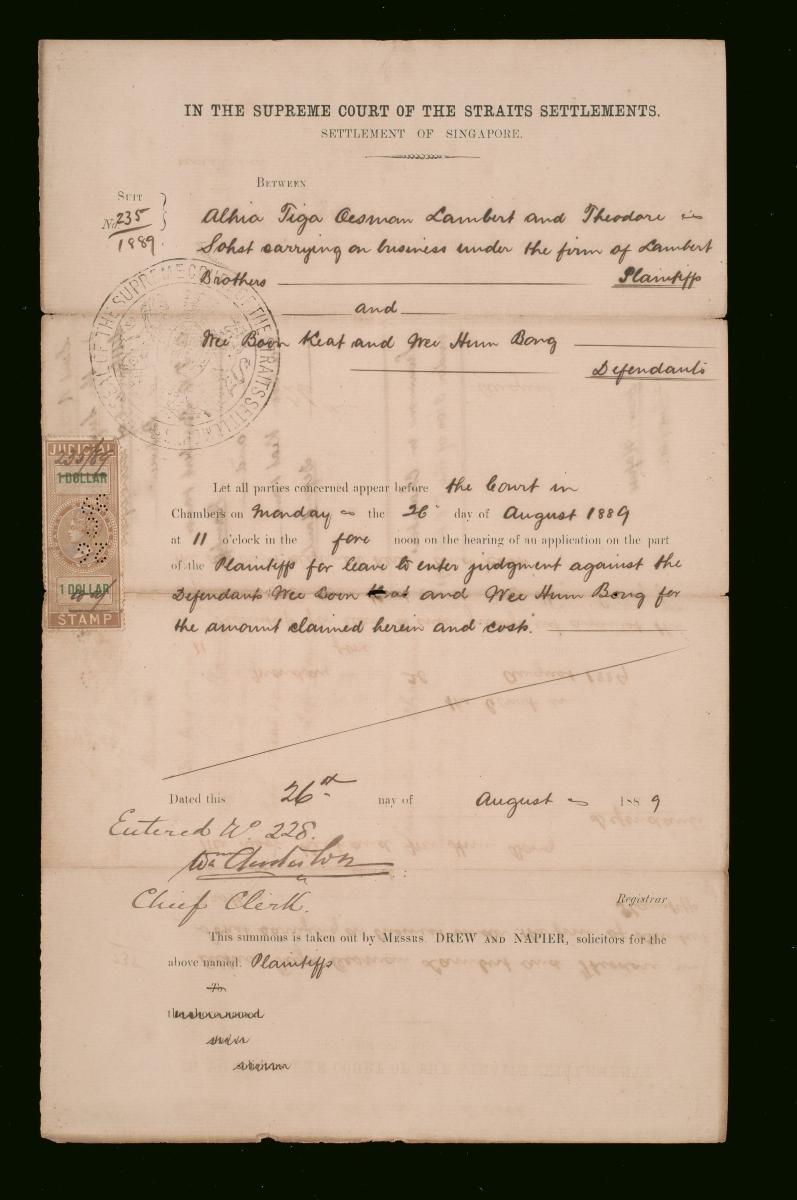 IN THE SUPREME COURT OF THE STRAITS SETTLEMENTS.
SETTLEMENT OF SINGAPORE.
BETWEEN
SUIT
No 235
1889.
Alhia Tiga Oesman Lambert and Theodore
Sohst carrying on business under the firm of Lambert
Brothers Plaintiffs
and
Wee Boon Keat and Wee Hum Bong
Defendants
JUDICIAL
235/89
1 DOLLAR
1 DOLLAR
STAMP
Let all parties concerned appear before the Court in
Chambers on Monday the 26 day of August 1889
at 11 o'clock in the fore noon on the hearing of an application on the part
of the Plaintiffs for leave to enter judgment against the
Defendants Wee Boon Keat and Wee Hum Bong for
the amount claimed herein and cost.
Dated this 26th day of August 1889
Entered No. 228.
Chief Clerk.
Registrar
This summons is taken out by MESSRS. DREW AND NAPIER, solicitors for the
above named. Plaintiffs
To